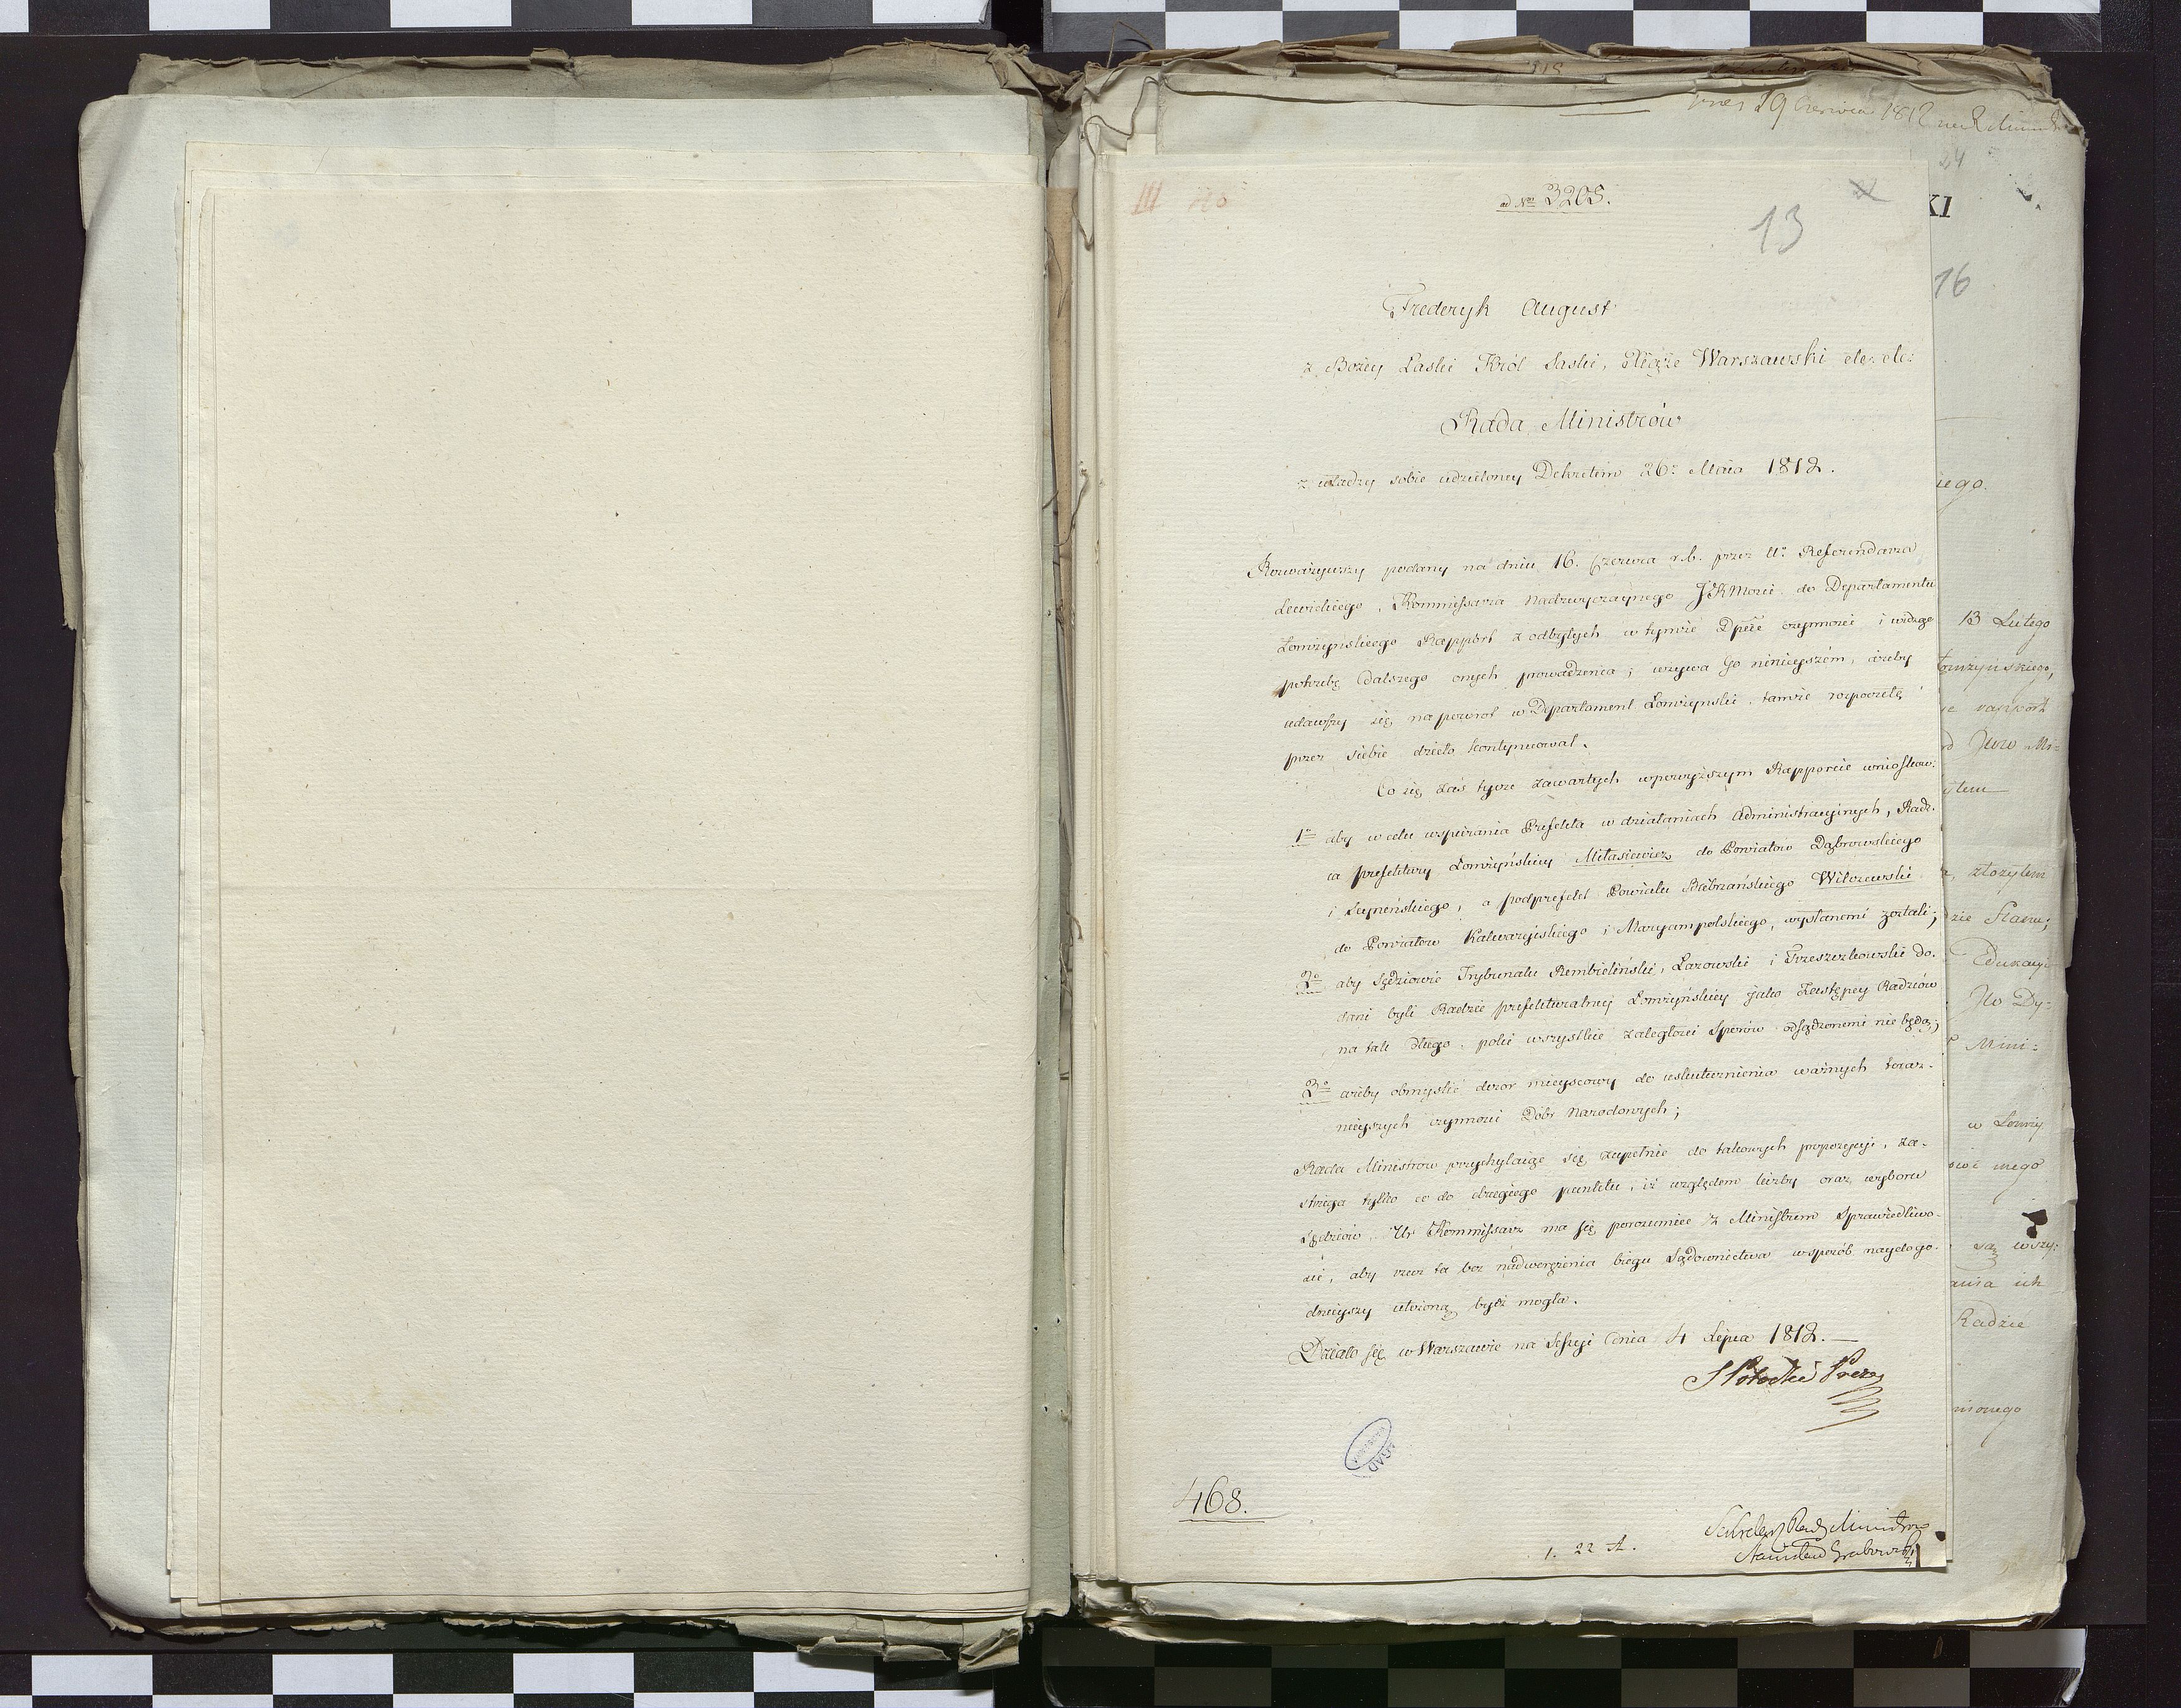 III
ad Nrm 3205.
13
Frederyk August
z Bożey Łaski Król Saski, Xiąże Warszawski etc: etc:
Rada Ministrów
z władzy sobie udzieloney Dekretem 26: Maia 1812.
Rozważywszy podany na dniu 16. Czerwca r.b. przez Ur Referendarza
Lewickiego, Kommissarza Nadzwyczaynego JKMości do Departamentu
Łomżyńskiego Rapport z odbytych w tymże Dpcie czynności i widząc
potrzebę dalszego onych prowadzenia; wzywa Go ninieyszém, ażeby
udawszy się na powrot w Departament Łomżyński tamże rozpoczęte
przez siebie dzieło kontynuował.
Co się zaś tycze zawartych w powyższym Rapporcie wniosków:
1o aby w celu wspierania Prefekta w działaniach Administracyinych, Radz-
ca prefektury Łomżyńskiey Milasiewicz do Powiatow Dąbrowskiego
i Seyneńskiego, a podprefekt Powiatu Biebrzańskiego Wilczewski
do Powiatow Kalwaryiskiego i Maryampolskiego, wysłanemi zostali;
2o aby Sędziowie Trybunału Rembieliński, Łazowski i Trzeszczkowski do-
dani byli Radzie prefekturalney Łomżyńskiey jako Zastępcy Radzców
na tak długo, poki wszystkie zaległości Sporów osądzonemi nie będą;
3o ażeby obmyślić dozor mieyscowy do uskutecznienia ważnych teraz-
nieyszych czynności Dóbr Narodowych;
Rada Ministrów przychylaiąc się zupełnie do takowych propozycyi, za-
strzega tylko co do drugiego punktu, iż względem liczby oraz wyboru
Sędziów, Ur Kommissarz ma się porozumieć z Ministrem Sprawiedliwo-
ści, aby rzecz ta bez nadwerężenia biegu Sądownictwa w sposób naydogo-
dnieyszy ułożoną bydź mogła.
Działo się w Warszawie na Sessyi dnia 4 Lipca 1812.
S Potocki Prezes
AGAD
468.
1. 22 A.
Sekretarz Rady Ministrow
Stanisław Grabowski
29 Czerwca 1812
24
XI
16
iego.
13 Lutego
omżyńskiego,
rapport
Mi=
złożyłem
dzie Stanu;
Edukacyi
Dy=
Mini=
w Łomży
mego
są wszy:
ich
Radzie
nionego